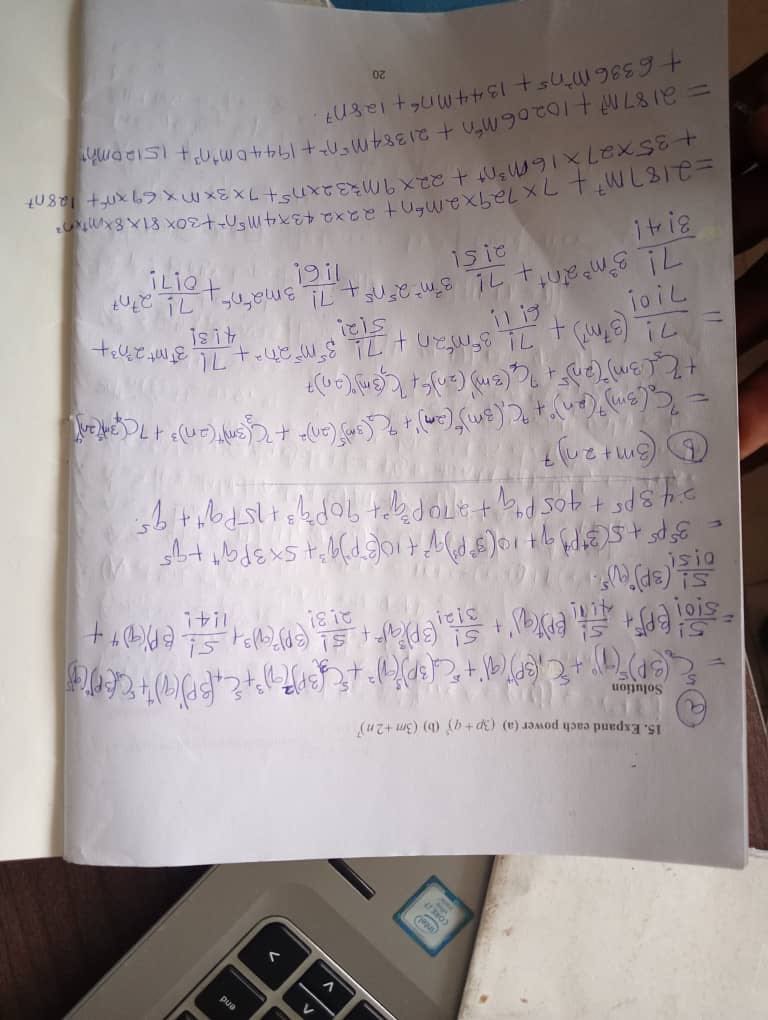 end
intel
CORE i7
15. Expand each power (a) (3p + q)⁵ (b) (3m + 2n)⁷
(a)
Solution
= ⁵C₀(3P)⁵(q)⁰ + ⁵C₁(3P)⁴(q)¹ + ⁵C₂(3P)³(q)² + ⁵C₃(3P)²(q)³ + ⁵C₄(3P)¹(q)⁴ + ⁵C₅(3P)⁰(q)⁵
= 5!/5!0! (3P)⁵ + 5!/4!1! (3P)⁴(q)¹ + 5!/3!2! (3P)³(q)² + 5!/2!3! (3P)²(q)³ + 5!/1!4! (3P)¹(q)⁴ +
5!/0!5! (3P)⁰(q)⁵.
= 3⁵P⁵ + 5(3⁴P⁴)q + 10(3³P³)q² + 10(3²P²)q³ + 5×3Pq⁴ + q⁵
243P⁵ + 405P⁴q + 270P³q² + 90P²q³ + 15Pq⁴ + q⁵.
(b) (3m + 2n)⁷
= ⁷C₀(3m)⁷(2n)⁰ + ⁷C₁(3m)⁶(2m)¹ + ⁷C₂(3m)⁵(2n)² + ⁷C₃(3m)⁴(2n)³ + 7C₄(3m)³(2n)⁴
+ ⁷C₅(3m)²(2n)⁵ + ⁷C₆(3m)¹(2n)⁶ + ⁷C₇(3m)⁰(2n)⁷
= 7!/7!0! (3⁷m⁷) + 7!/6!1! 3⁶m⁶2n + 7!/5!2! 3⁵m⁵2²n² + 7!/4!3! 3⁴m⁴2³n³ +
7!/3!4! 3³m³2⁴n⁴ + 7!/2!5! 3²m²2⁵n⁵ + 7!/1!6! 3m2⁶n⁶ + 7!/0!7! 2⁷n⁷
= 2187m⁷ + 7×729×2m⁶n + 22×243×4m⁵n² + 30×81×8×m⁴×n³
+ 35×27×16m³n⁴ + 22×9m²32×n⁵ + 7×3×m×69×n⁶ + 128n⁷
= 2187m⁷ + 10206m⁶n + 21384m⁵n² + 19440m⁴n³ + 15120m³n⁴
+ 6336m²n⁵ + 1344mn⁶ + 128n⁷.
20